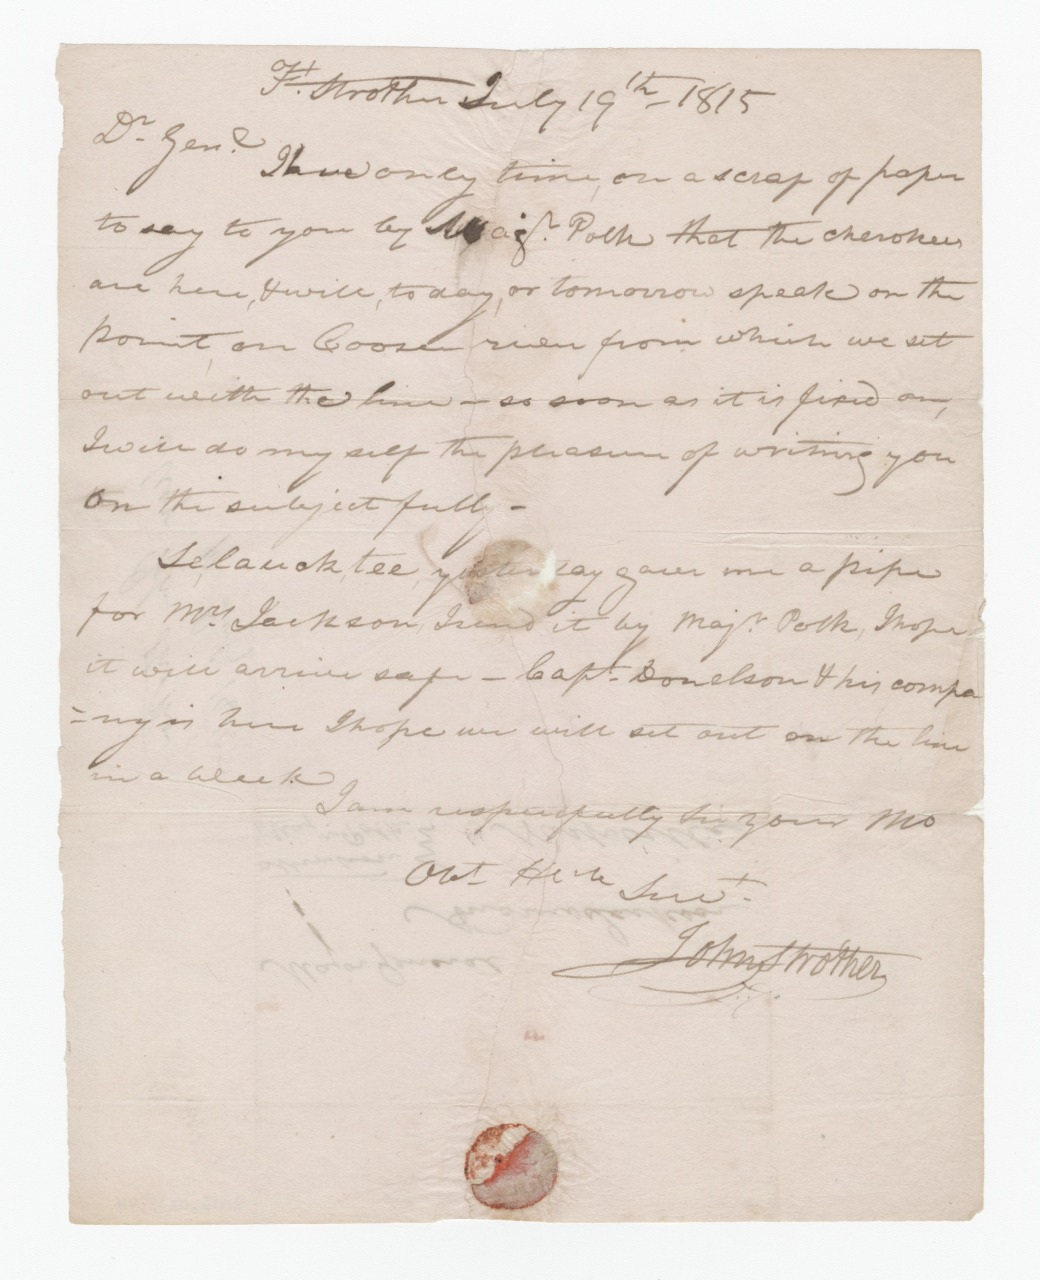 Ft. Strother July 19th - 1815
Dr. Genl.
I have only time, on a scrap of paper
to say to you by Majr. Polk that the cherokees
are here, & will, to day, or tomorrow speak on the
point, on Coosee river from which we set
out with the line - so soon as it is fixed on,
I will do my self the pleasure of writing you
on the subject fully -
Selauck,tee, yesterday gave me a pipe
for Mrs. Jackson, I send it by Majr. Polk, I hope
it will arrive safe - Capt. Donelson & his compa
=ny is here I hope we will set out on the line
in a week
I am respectfully Sir your Mo
Obt. Hble Servt.
John Strother